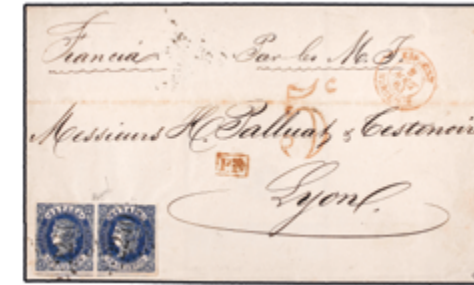 Francia Par les M. I.
5 c
Messieurs H. Palluat & Testenoire
Lyon